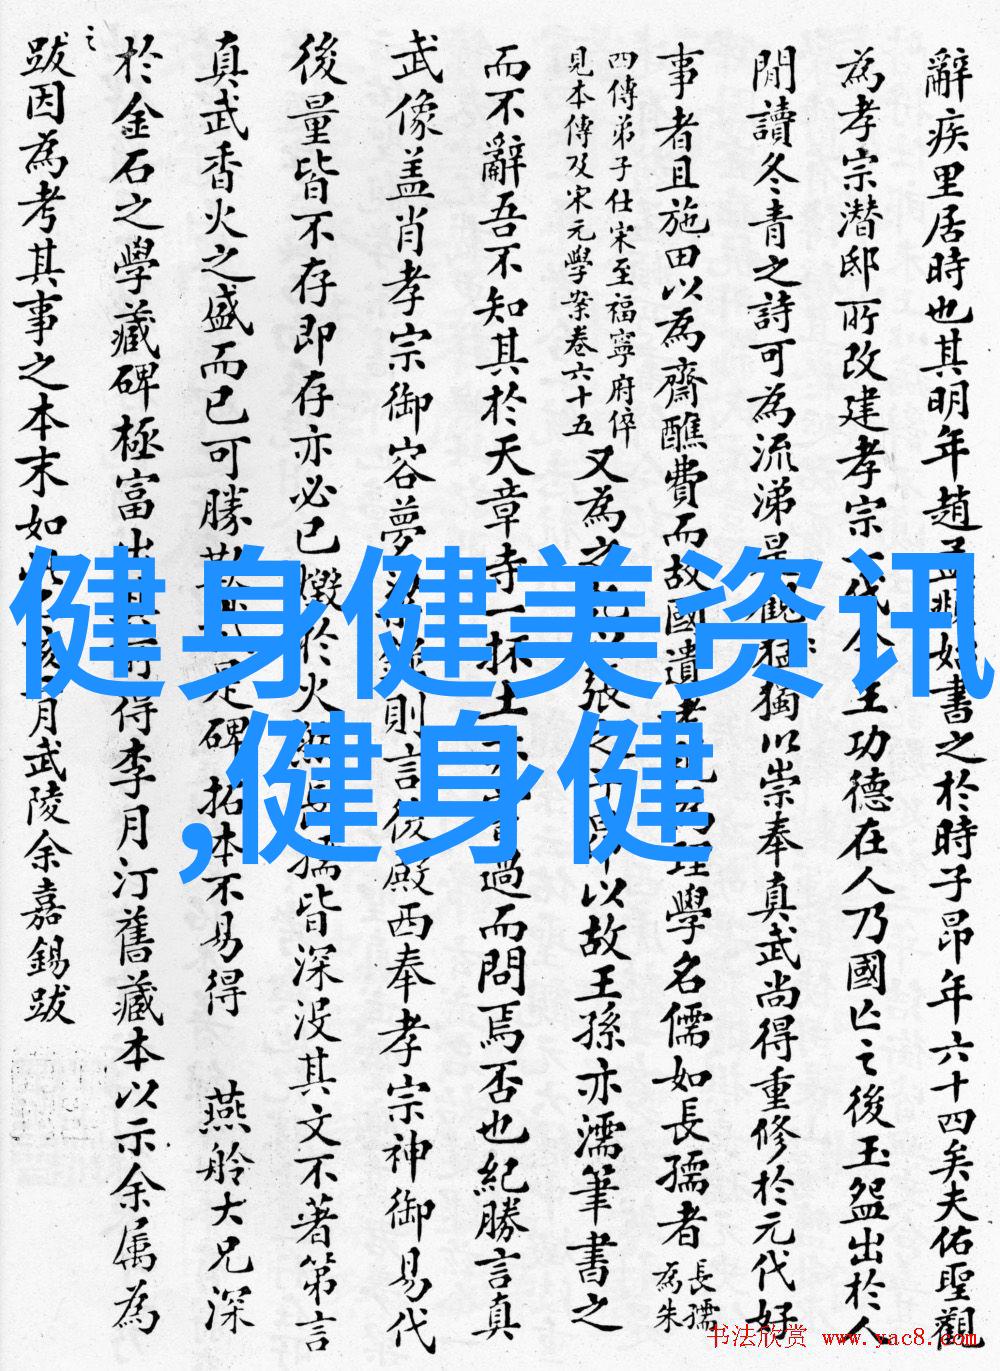 辭疾里居時也其明年趙孟頫始書之於時子昂年六十四矣夫佑聖觀
為孝宗潛邸所改建孝宗一代令主功德在人乃國亡之後玉盌出於人
間讀冬青之詩可為流涕是觀猶獨以崇奉真武尚得重修於元代好
事者且施田以為齋醮費而故國遺老 理學名儒如長孺者
長孺
為朱
四傳弟子仕宋至福寧府倅
見本傳及宋元學案卷六十五
又為之記 張之 以故王孫亦濡筆書之
而不辭吾不知其於天章寺一抔土 過而問焉否也紀勝言真
武像蓋肖孝宗御容夢 則言後殿西奉孝宗神御易代
後量皆不存即存亦必已燬於火 長孺皆深沒其文不著第言
真武香火之盛而已可勝歎 是碑拓本不易得 燕舲大兄深
於金石之學藏碑極富 得李月汀舊藏本以示余属為
之
跋因為考其事之本末如此 亥 月武陵余嘉錫跋
健身健美资讯
,健身健
书法欣赏 www.yac8.com